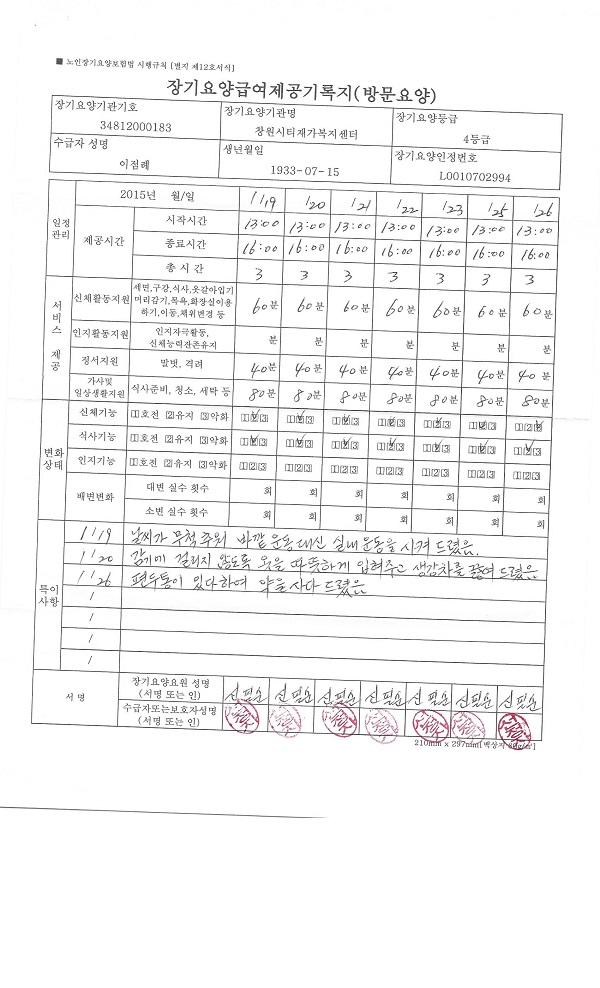 ■ 노인장기요양보험법 시행규칙 [별지 제12호서식]
장기요양급여제공기록지(방문요양)
장기요양기관기호 장기요양기관명 장기요양등급
34812000183 창원시티재가복지센터 4등급
수급자 성명 생년월일 장기요양인정번호
이점례 1933-07-15 L0010702994
2015년 월/일 1/19 1/20 1/21 1/22 1/23 1/25 1/26
일정관리 제공시간
시작시간 13:00 13:00 13:00 13:00 13:00 13:00 13:00
종료시간 16:00 16:00 16:00 16:00 16:00 16:00 16:00
총 시 간 3 3 3 3 3 3 3
서비스 제공
신체활동지원 세면,구강,식사,옷갈아입기
머리감기,목욕,화장실이용
하기,이동,체위변경 등
60분 60분 60분 60분 60분 60분 60분
인지활동지원 인지자극활동,
신체능력잔존유지
분 분 분 분 분 분 분
정서지원 말벗, 격려 40분 40분 40분 40분 40분 40분 40분
가사및
일상생활지원 식사준비, 청소, 세탁 등 80분 80분 80분 80분 80분 80분 80분
변화상태
신체기능 1호전 2유지 3악화 123 123 123 123 123 123 123
식사기능 1호전 2유지 3악화 123 123 123 123 123 123 123
인지기능 1호전 2유지 3악화 123 123 123 123 123 123 123
배변변화 대변 실수 횟수 회 회 회 회 회 회 회
소변 실수 횟수 회 회 회 회 회 회 회
특이사항
1/19 날씨가 무척 추워 바깥 운동 대신 실내 운동을 시켜 드렸음.
1/20 감기에 걸리지 않도록 옷을 따뜻하게 입혀주고 생강차를 끓여 드렸음
1/26 편두통이 있다하여 약을 사다 드렸음
/
/
/
/
서 명
장기요양요원 성명
(서명 또는 인)
신필순 신필순 신필순 신필순 신필순 신필순 신필순
수급자또는보호자성명
(서명 또는 인)
210mm x 297mm[백상지 80g/㎡]